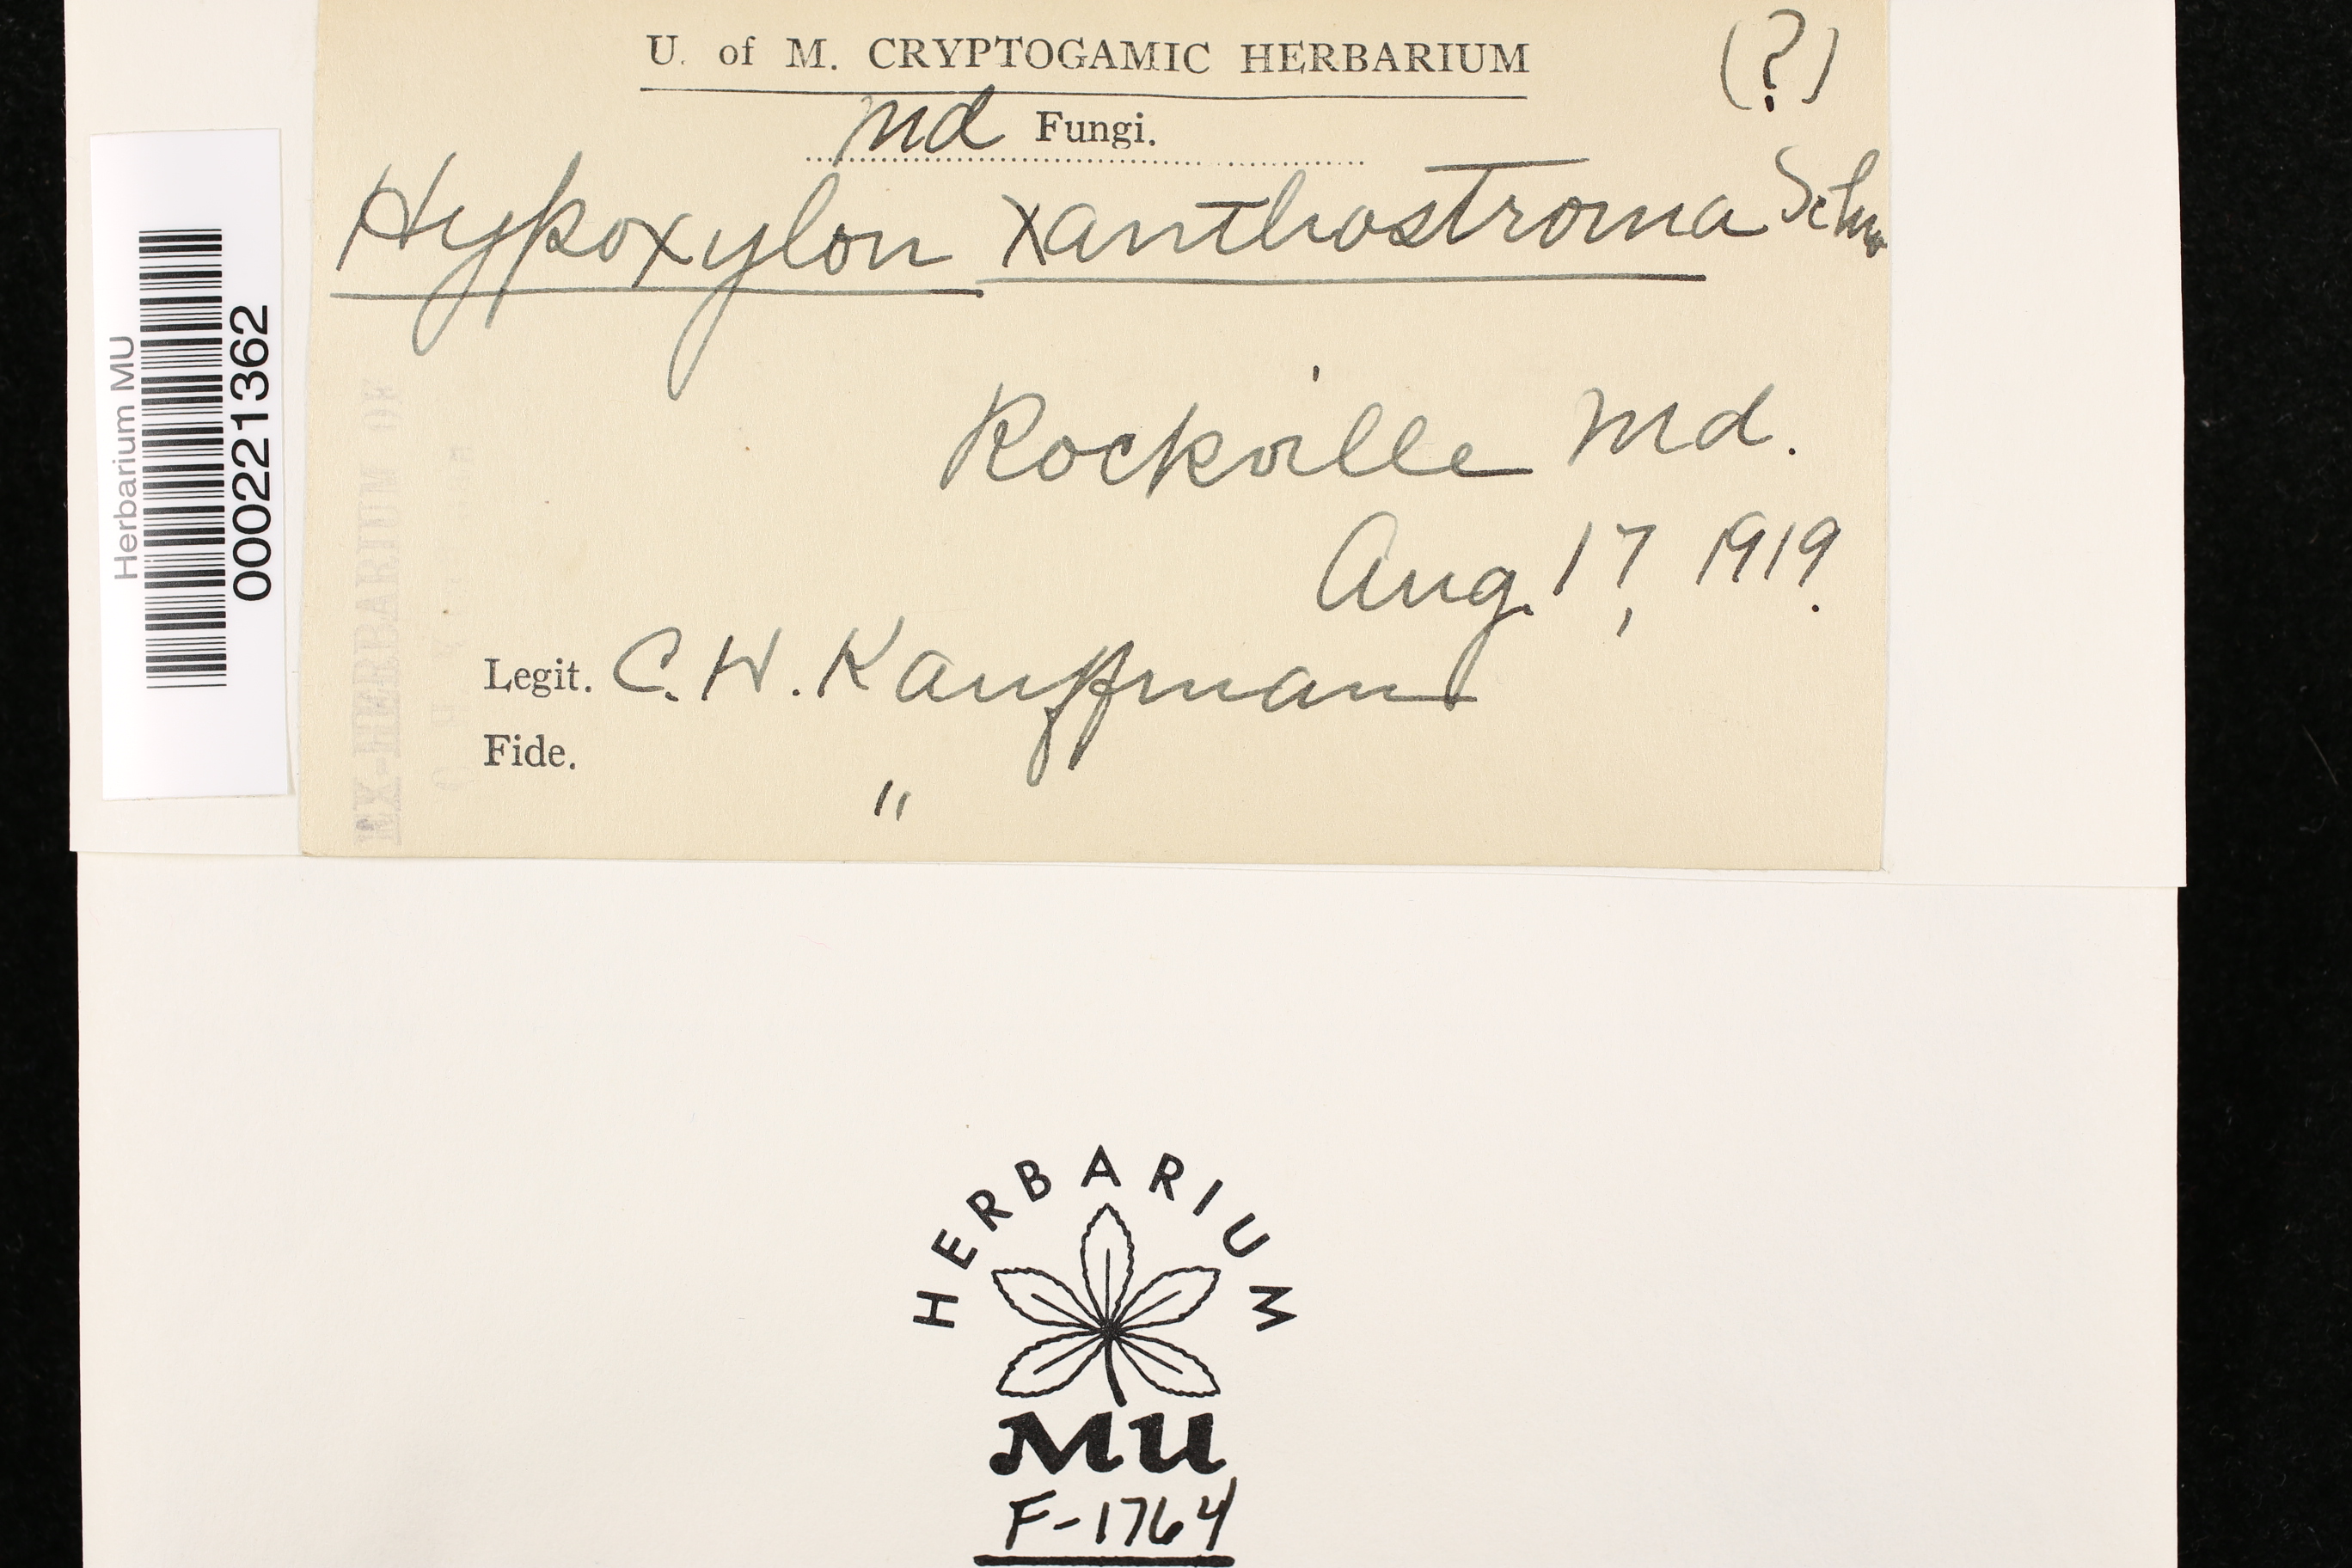 U. of M. CRYPTOGAMIC HERBARIUM
(?)
Md Fungi.
Hypoxylon xanthostroma Schw
Rockville Md.
Aug. 17, 1919.
Legit. C. H. Kauffman
Fide. "
EX-HERBARIUM OF
Herbarium MU
000221362
HERBARIUM
MU
F-1764